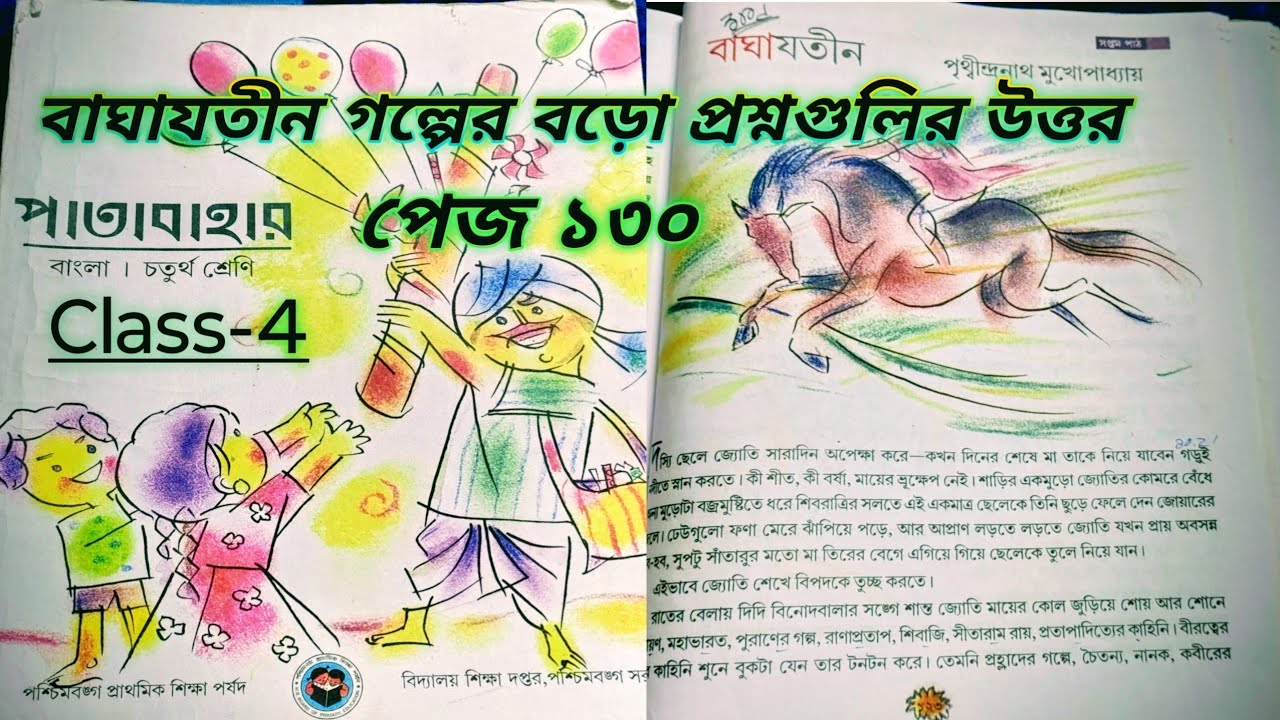 বাঘাযতীন গল্পের বড়ো প্রশ্নগুলির উত্তর
পেজ ১৩০
পাতাবাহার
বাংলা । চতুর্থ শ্রেণি
Class-4
পশ্চিমবঙ্গ প্রাথমিক শিক্ষা পর্ষদ
বিদ্যালয় শিক্ষা দপ্তর,পশ্চিমবঙ্গ সর
সপ্তম পাঠ
বাঘাযতীন
পৃথ্বীন্দ্রনাথ মুখোপাধ্যায়
স্যি ছেলে জ্যোতি সারাদিন অপেক্ষা করে—কখন দিনের শেষে মা তাকে নিয়ে যাবেন গড়ুই
স্নান করতে। কী শীত, কী বর্ষা, মায়ের ভ্রূক্ষেপ নেই। শাড়ির একমুড়ো জ্যোতির কোমরে বেঁধে
মুড়োটা বজ্রমুষ্টিতে ধরে শিবরাত্রির সলতে এই একমাত্র ছেলেকে তিনি ছুড়ে ফেলে দেন জোয়ারের
লে। ঢেউগুলো ফণা মেরে ঝাঁপিয়ে পড়ে, আর আপ্রাণ লড়তে লড়তে জ্যোতি যখন প্রায় অবসন্ন
-হব, সুপটু সাঁতারুর মতো মা তিরের বেগে এগিয়ে গিয়ে ছেলেকে তুলে নিয়ে যান।
এইভাবে জ্যোতি শেখে বিপদকে তুচ্ছ করতে।
রাতের বেলায় দিদি বিনোদবালার সঙ্গে শান্ত জ্যোতি মায়ের কোল জুড়িয়ে শোয় আর শোনে
মহাভারত, পুরাণের গল্প, রাণাপ্রতাপ, শিবাজি, সীতারাম রায়, প্রতাপাদিত্যের কাহিনি। বীরত্বের
কাহিনি শুনে বুকটা যেন তার টনটন করে। তেমনি প্রহ্লাদের গল্পে, চৈতন্য, নানক, কবীরের